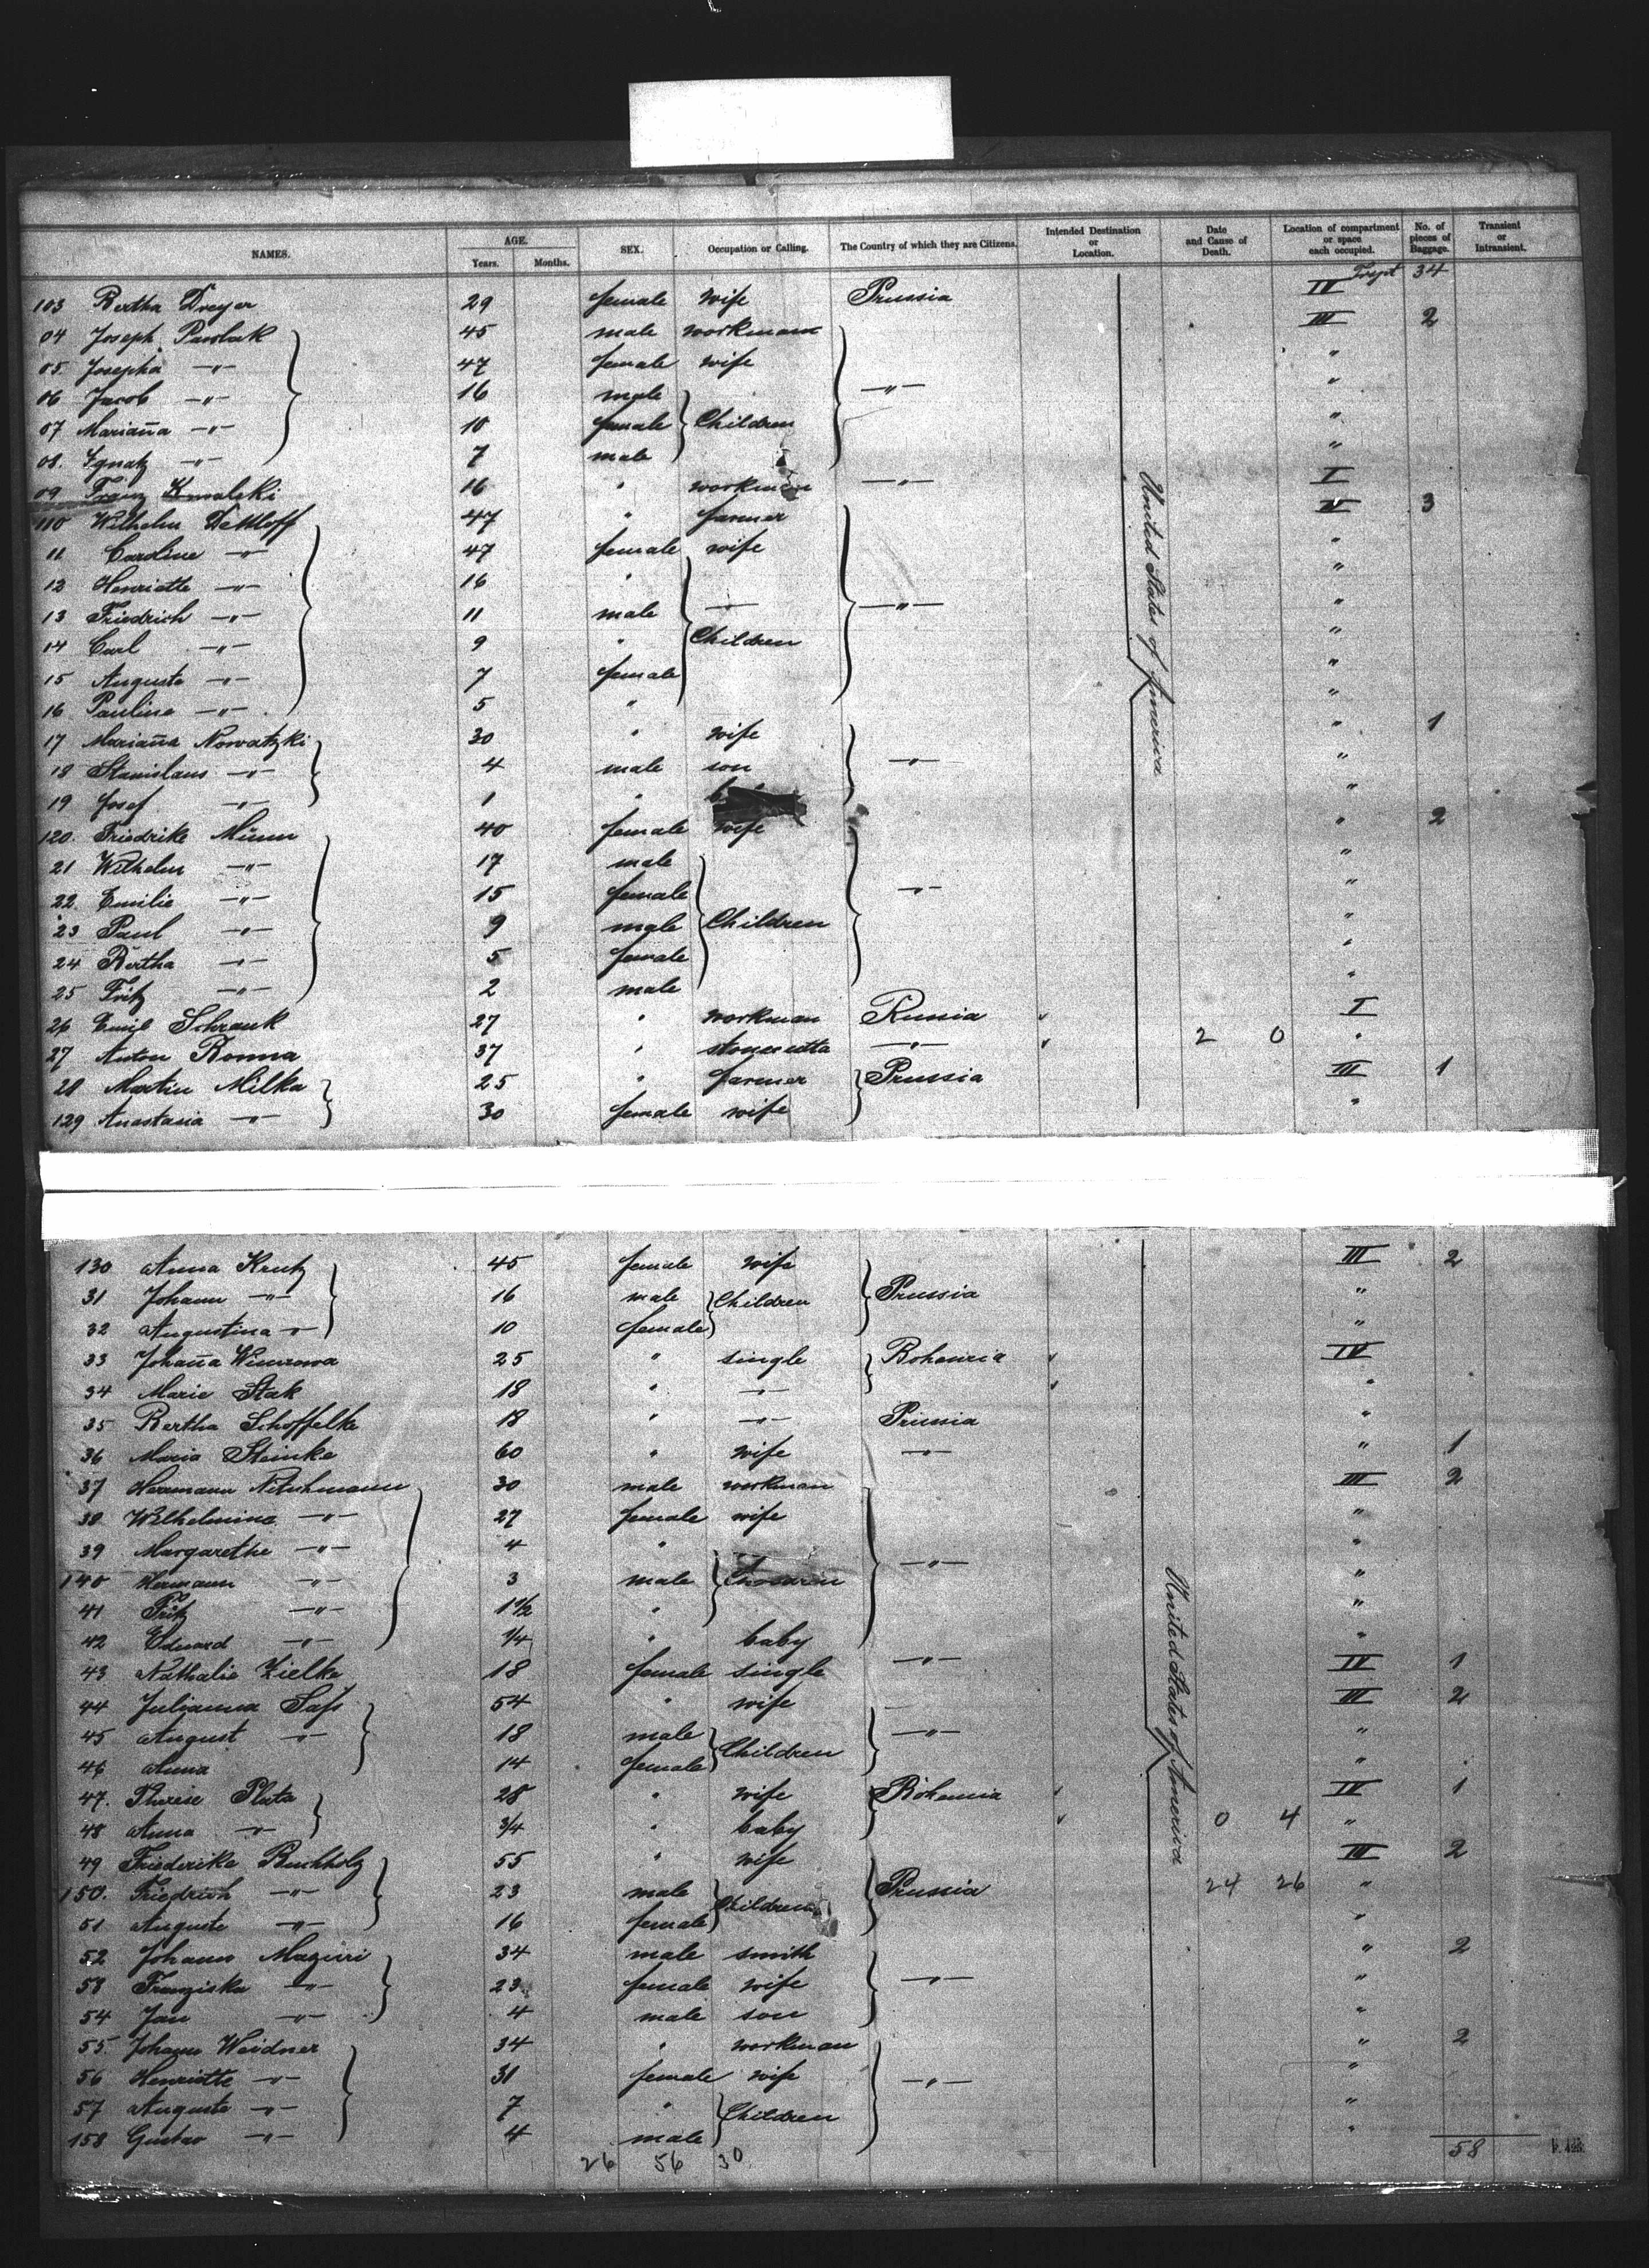 NAMES. AGE. Years. Months. SEX. Occupation or Calling. The Country of which they are Citizens. Intended Destination or Location. Date and Cause of Death. Location of compartment or space each occupied. No. of pieces of Baggage. Transient or Intransient.
34
103 Bertha Dreyer 29 female wife Prussia IV
04 Joseph Pawlak 45 male workman III 2
05. Josepha —"— 47 female wife "
06 Jacob —"— 16 male —"— "
07 Marian̄a —"— 10 female Children "
08. Ignatz —"— 7 male "
09 Franz Kowalski 16 " workman —"— I
110 Wilhelm Dettloff 47 " farmer IV 3
11 Caroline —"— 47 female wife "
12 Henriette —"— 16 " "
13 Friedrich —"— 11 male —"— "
14 Carl —"— 9 " Children "
15 Auguste —"— 7 female "
16 Pauline —"— 5 " "
17 Marian̄a Nowatzki 30 " wife " 1
18 Stanislaus —"— 4 male son —"— "
19 Josef —"— 1 " "
120. Friedrike Münn 40 female wife " 2
21 Wilhelm —"— 17 male "
22. Emilie —"— 15 female —"— "
23 Paul —"— 9 male Children "
24 Bertha —"— 5 female "
25 Fritz —"— 2 male "
26 Emil Schrank 27 " workman Russia I
27 Anton Romna 37 " —"— 2 0 "
28 Martin Milka 25 " farmer Prussia III 1
129 Anastasia —"— 30 female wife "
United States of America
130 Anna Krutz 45 female wife III 2
31 Johann —"— 16 male Children Prussia "
32 Augustina —"— 10 female "
33 Johan̄a 25 " single Bohemia IV
34 Marie Stak 18 " —"— "
35 Bertha Schoffelke 18 " —"— Prussia "
36 Maria Steinke 60 " wife —"— " 1
37 Hermann 30 male workman III 2
38 Wilhelmine —"— 27 female wife "
39 Margarethe —"— 4 " "
140 Hermann —"— 3 male —"— "
41 Fritz —"— 1 1/2 " "
42 Eduard —"— 1/4 " baby "
43 Nathalie Zielke 18 female single —"— IV 1
44 Julianna Saß 54 " wife III 2
45 August —"— 18 male Children —"— "
46 Anna 14 female "
47. Therese Pluta 28 " wife Bohemia IV 1
48 Anna —"— 3/4 " baby 0 4 "
49 Friederike Buchholz 55 " wife III 2
150. Friedrich —"— 23 male Children Prussia 24 26 "
51 Auguste —"— 16 female "
52 Johann 34 male smith " 2
53 Franziska —"— 23 female wife —"— "
54 Jan —"— 4 male son "
55 Johann Weidner 34 " workman " 2
56 Henriette —"— 31 female wife —"— "
57 Auguste —"— 7 " Children "
158 Gustav —"— 4 male "
United States of America
26 56 30 58